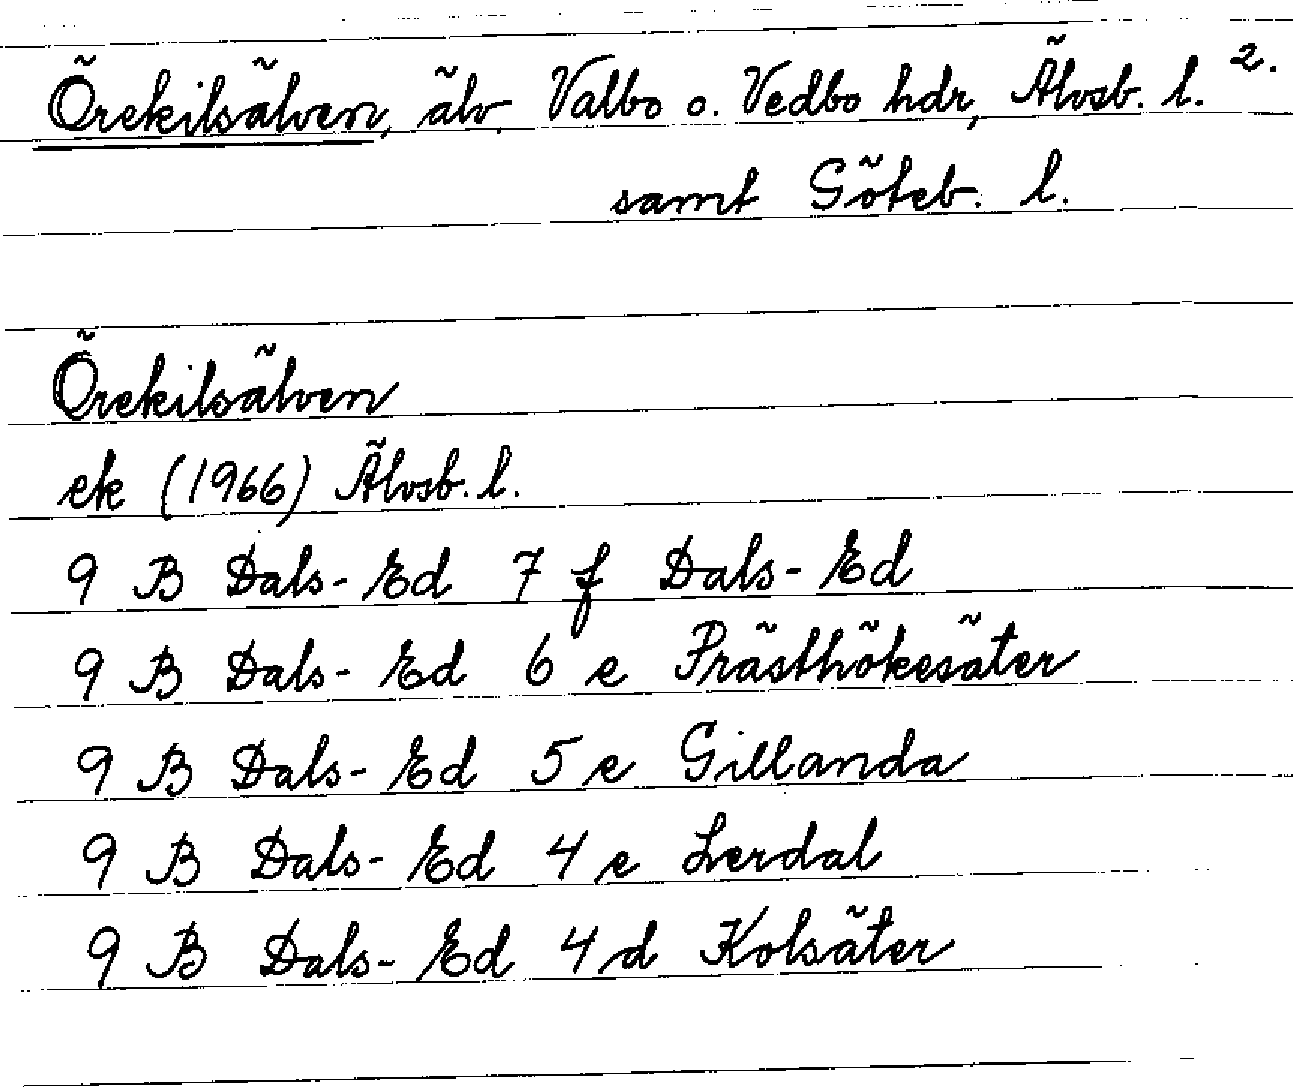 Örekilsälven, älv, Valbo o. Vedbo hdr, Älvsb. l. 2.
samt Göteb. l.
Örekilsälven
ek (1966) Älvsb. l.
9 B Dals-Ed 7 f Dals-Ed
9 B Dals-Ed 6 e Prästhökesäter
9 B Dals-Ed 5 e Gillanda
9 B Dals-Ed 4 e Lerdal
9 B Dals-Ed 4 d Kolsäter